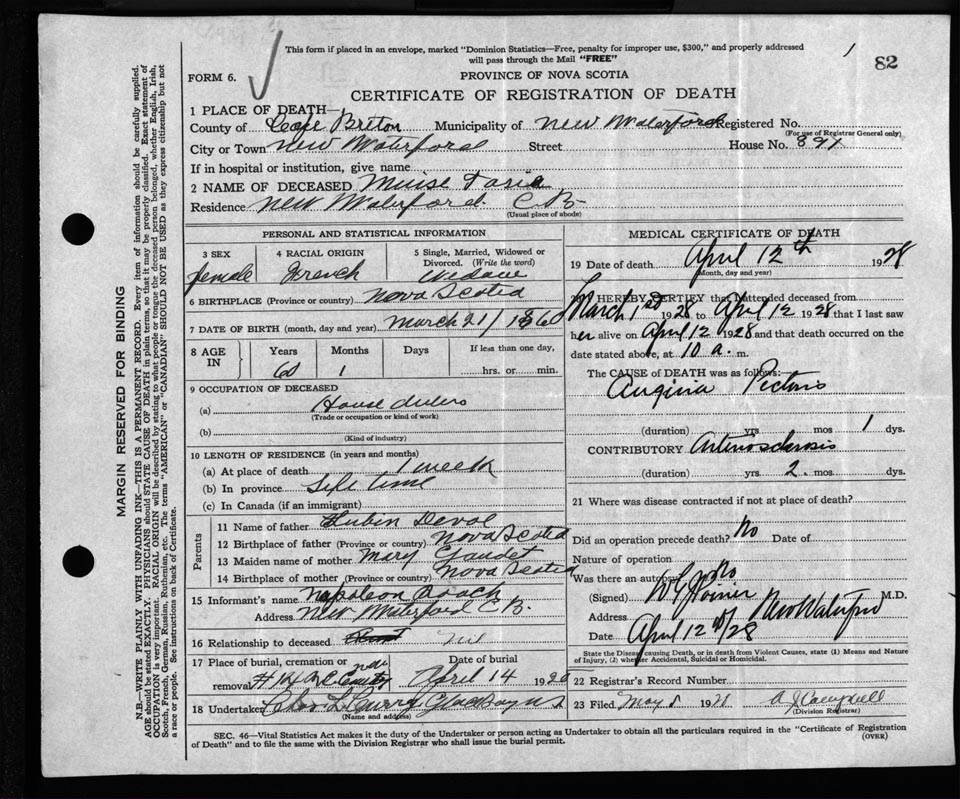 This form if placed in an envelope, marked "Dominion Statistics—Free, penalty for improper use, $300," and properly addressed
will pass through the Mail "FREE"
1
82
FORM 6.
PROVINCE OF NOVA SCOTIA
CERTIFICATE OF REGISTRATION OF DEATH
1 PLACE OF DEATH—
County of Cape Breton Municipality of New Waterford Registered No.
(For use of Registrar General only)
City or Town New Waterford Street House No.
If in hospital or institution, give name
2 NAME OF DECEASED Muise
Residence New Waterford C B
(Usual place of abode)
PERSONAL AND STATISTICAL INFORMATION
3 SEX
female
4 RACIAL ORIGIN
French
5 Single, Married, Widowed or
Divorced. (Write the word)
6 BIRTHPLACE (Province or country) Nova Scotia
7 DATE OF BIRTH (month, day and year) March 21/1860
8 AGE IN
Years Months Days If less than one day,
1 hrs. or min.
9 OCCUPATION OF DECEASED
(a) House
(Trade or occupation or kind of work)
(b)
(Kind of industry)
10 LENGTH OF RESIDENCE (in years and months)
(a) At place of death 1 week
(b) In province Life time
(c) In Canada (if an immigrant)
Parents
11 Name of father
12 Birthplace of father (Province or country) Nova Scotia
13 Maiden name of mother Mary Gaudet
14 Birthplace of mother (Province or country) Nova Scotia
15 Informant's name Napoleon Roach
Address New Waterford C B.
16 Relationship to deceased
17 Place of burial, cremation or removal
Date of burial
April 14 192
18 Undertaker
(Name and address)
MEDICAL CERTIFICATE OF DEATH
19 Date of death April 12th 1928
(Month, day and year)
I HEREBY CERTIFY that I attended deceased from
March 1st 1928 to April 12 1928 that I last saw
her alive on April 12 1928 and that death occurred on
date stated above, at 10 a. m.
The CAUSE of DEATH was as follows:
Angina Pectoris
(duration) yrs mos 1 dys.
CONTRIBUTORY Arteriosclerosis
(duration) yrs 2. mos dys.
21 Where was disease contracted if not at place of death?
Did an operation precede death? No Date of
Nature of operation
Was there an autopsy No
(Signed) M.D.
Address New Waterford
Date April 12th/28
State the Disease causing Death, or in death from Violent Causes, state (1) Means and Nature
of Injury, (2) whether Accidental, Suicidal or Homicidal.
22 Registrar's Record Number
23 Filed May 192 A J Campbell
(Division Registrar)
SEC. 46—Vital Statistics Act makes it the duty of the Undertaker or person acting as Undertaker to obtain all the particulars required in the "Certificate of Registration
of Death" and to file the same with the Division Registrar who shall issue the burial permit.
(OVER)
MARGIN RESERVED FOR BINDING
N.B.—WRITE PLAINLY WITH UNFADING INK—THIS IS A PERMANENT RECORD. Every item of information should be carefully supplied.
AGE should be stated EXACTLY. PHYSICIANS should STATE CAUSE OF DEATH in plain terms, so that it may be properly classified. Exact statement of
OCCUPATION is very important. RACIAL ORIGIN will be described by stating to what people or tongue the deceased person belonged, whether English, Irish,
Scotch, French, German, Russian, Ruthenian, etc. The terms "AMERICAN" or "CANADIAN" SHOULD NOT BE USED as they express citizenship but not
a race or people. See instructions on back of Certificate.